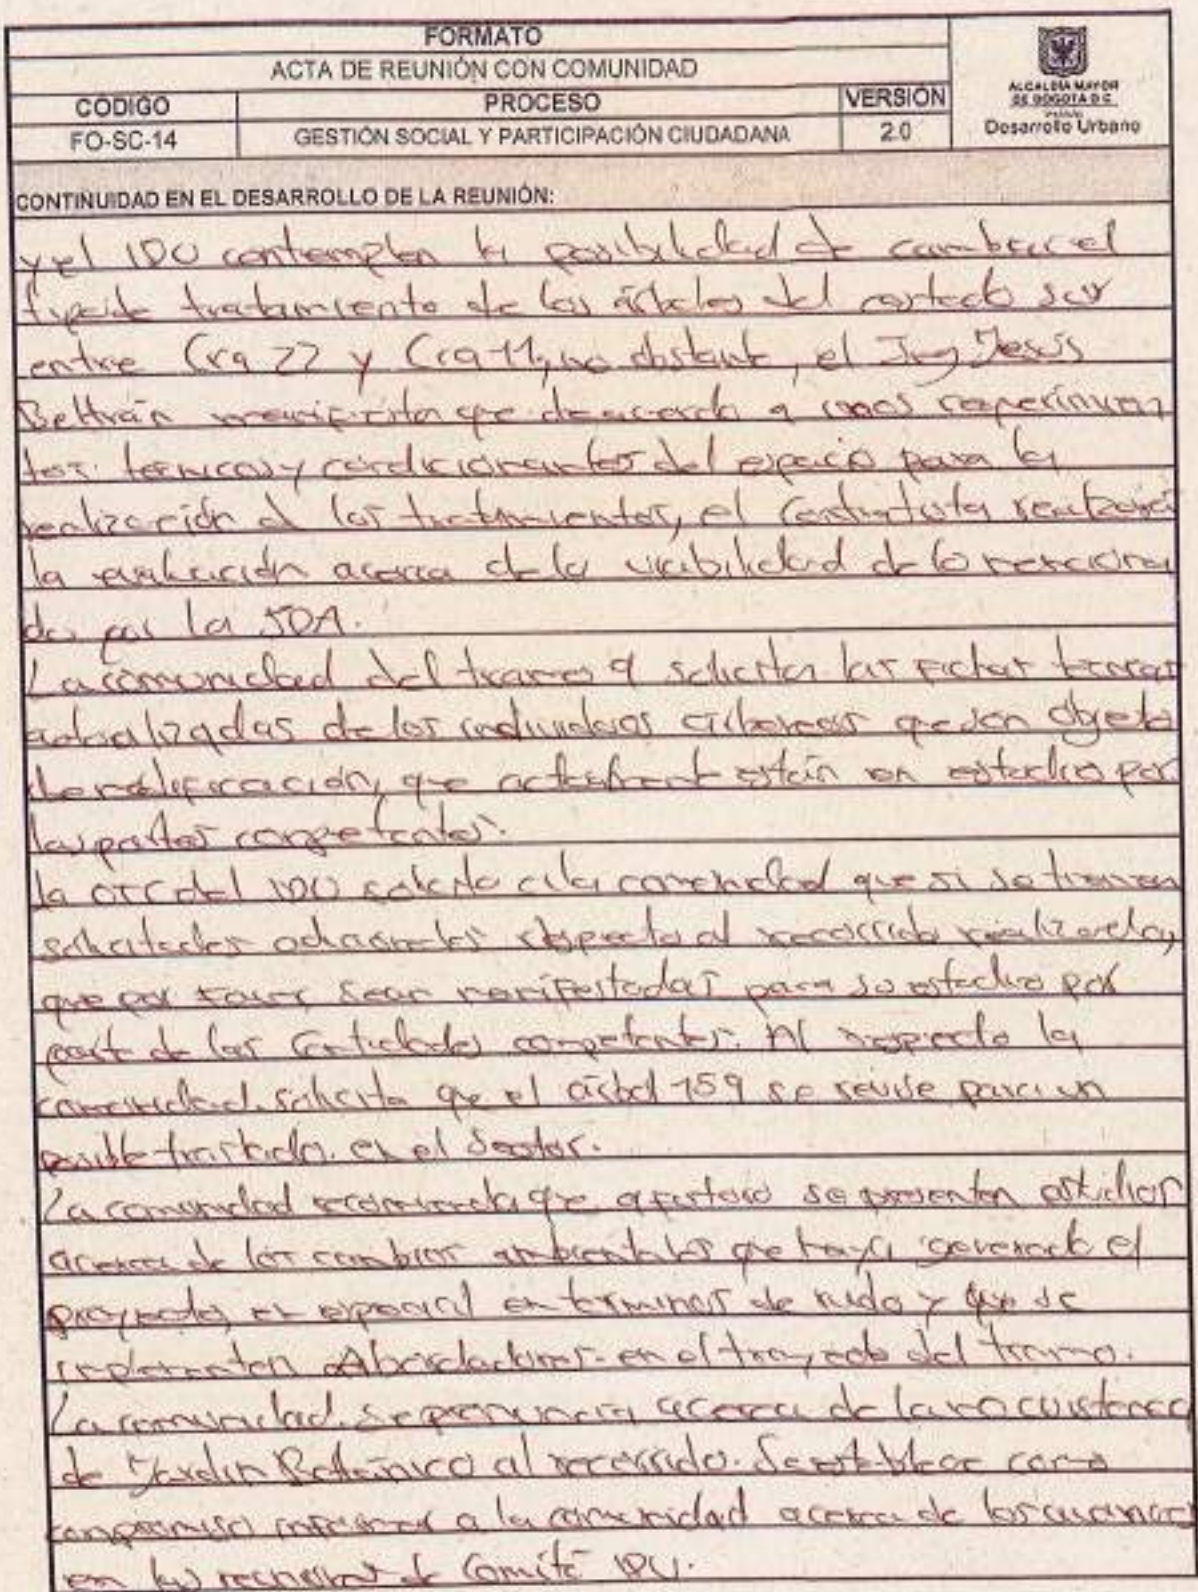 FORMATO
ACTA DE REUNIÓN CON COMUNIDAD
CÓDIGO PROCESO VERSIÓN
FO-SC-14 GESTIÓN SOCIAL Y PARTICIPACIÓN CIUDADANA 2.0
ALCALDÍA MAYOR
DE BOGOTÁ D.C.
Desarrollo Urbano
CONTINUIDAD EN EL DESARROLLO DE LA REUNIÓN:
y el IDU contemplen la posibilidad de cambiar el
tipo de tratamiento de los árboles del costado sur
entre Cra 22 y Cra 11, no obstante, el Ing Jesús
Beltrán manifiesta que de acuerdo a unos requerimien
tos técnicos y condicionantes del espacio para la
realización de los tratamientos, el Contratista realizará
la evaluación acerca de la viabilidad de lo menciona
do por la SDA.
La comunidad del tramo 9 solicita las fichas técnicas
actualizadas de los individuos arbóreos que son objeto
de replificación, que actualmente están en estudio por
las partes competentes.
la OTC del IDU solicita a la comunidad que si se tienen
solicitudes adicionales respecto al recorrido realizado,
que por favor sean manifestadas para su estudio por
parte de las Entidades competentes. Al respecto la
comunidad solicita que el árbol 159 se revise para un
posible traslado en el Sector.
La comunidad recomienda que a futuro se presenten estudios
acerca de los cambios ambientales que haya generado el
proyecto, en especial en términos de ruido y que se
implementen en el trayecto del tramo.
La comunidad se pronuncia acerca de la no asistencia
de Jardín Botánico al recorrido. Se establece como
compromiso informar a la comunidad acerca de los avances
en las reuniones de Comité IDU.